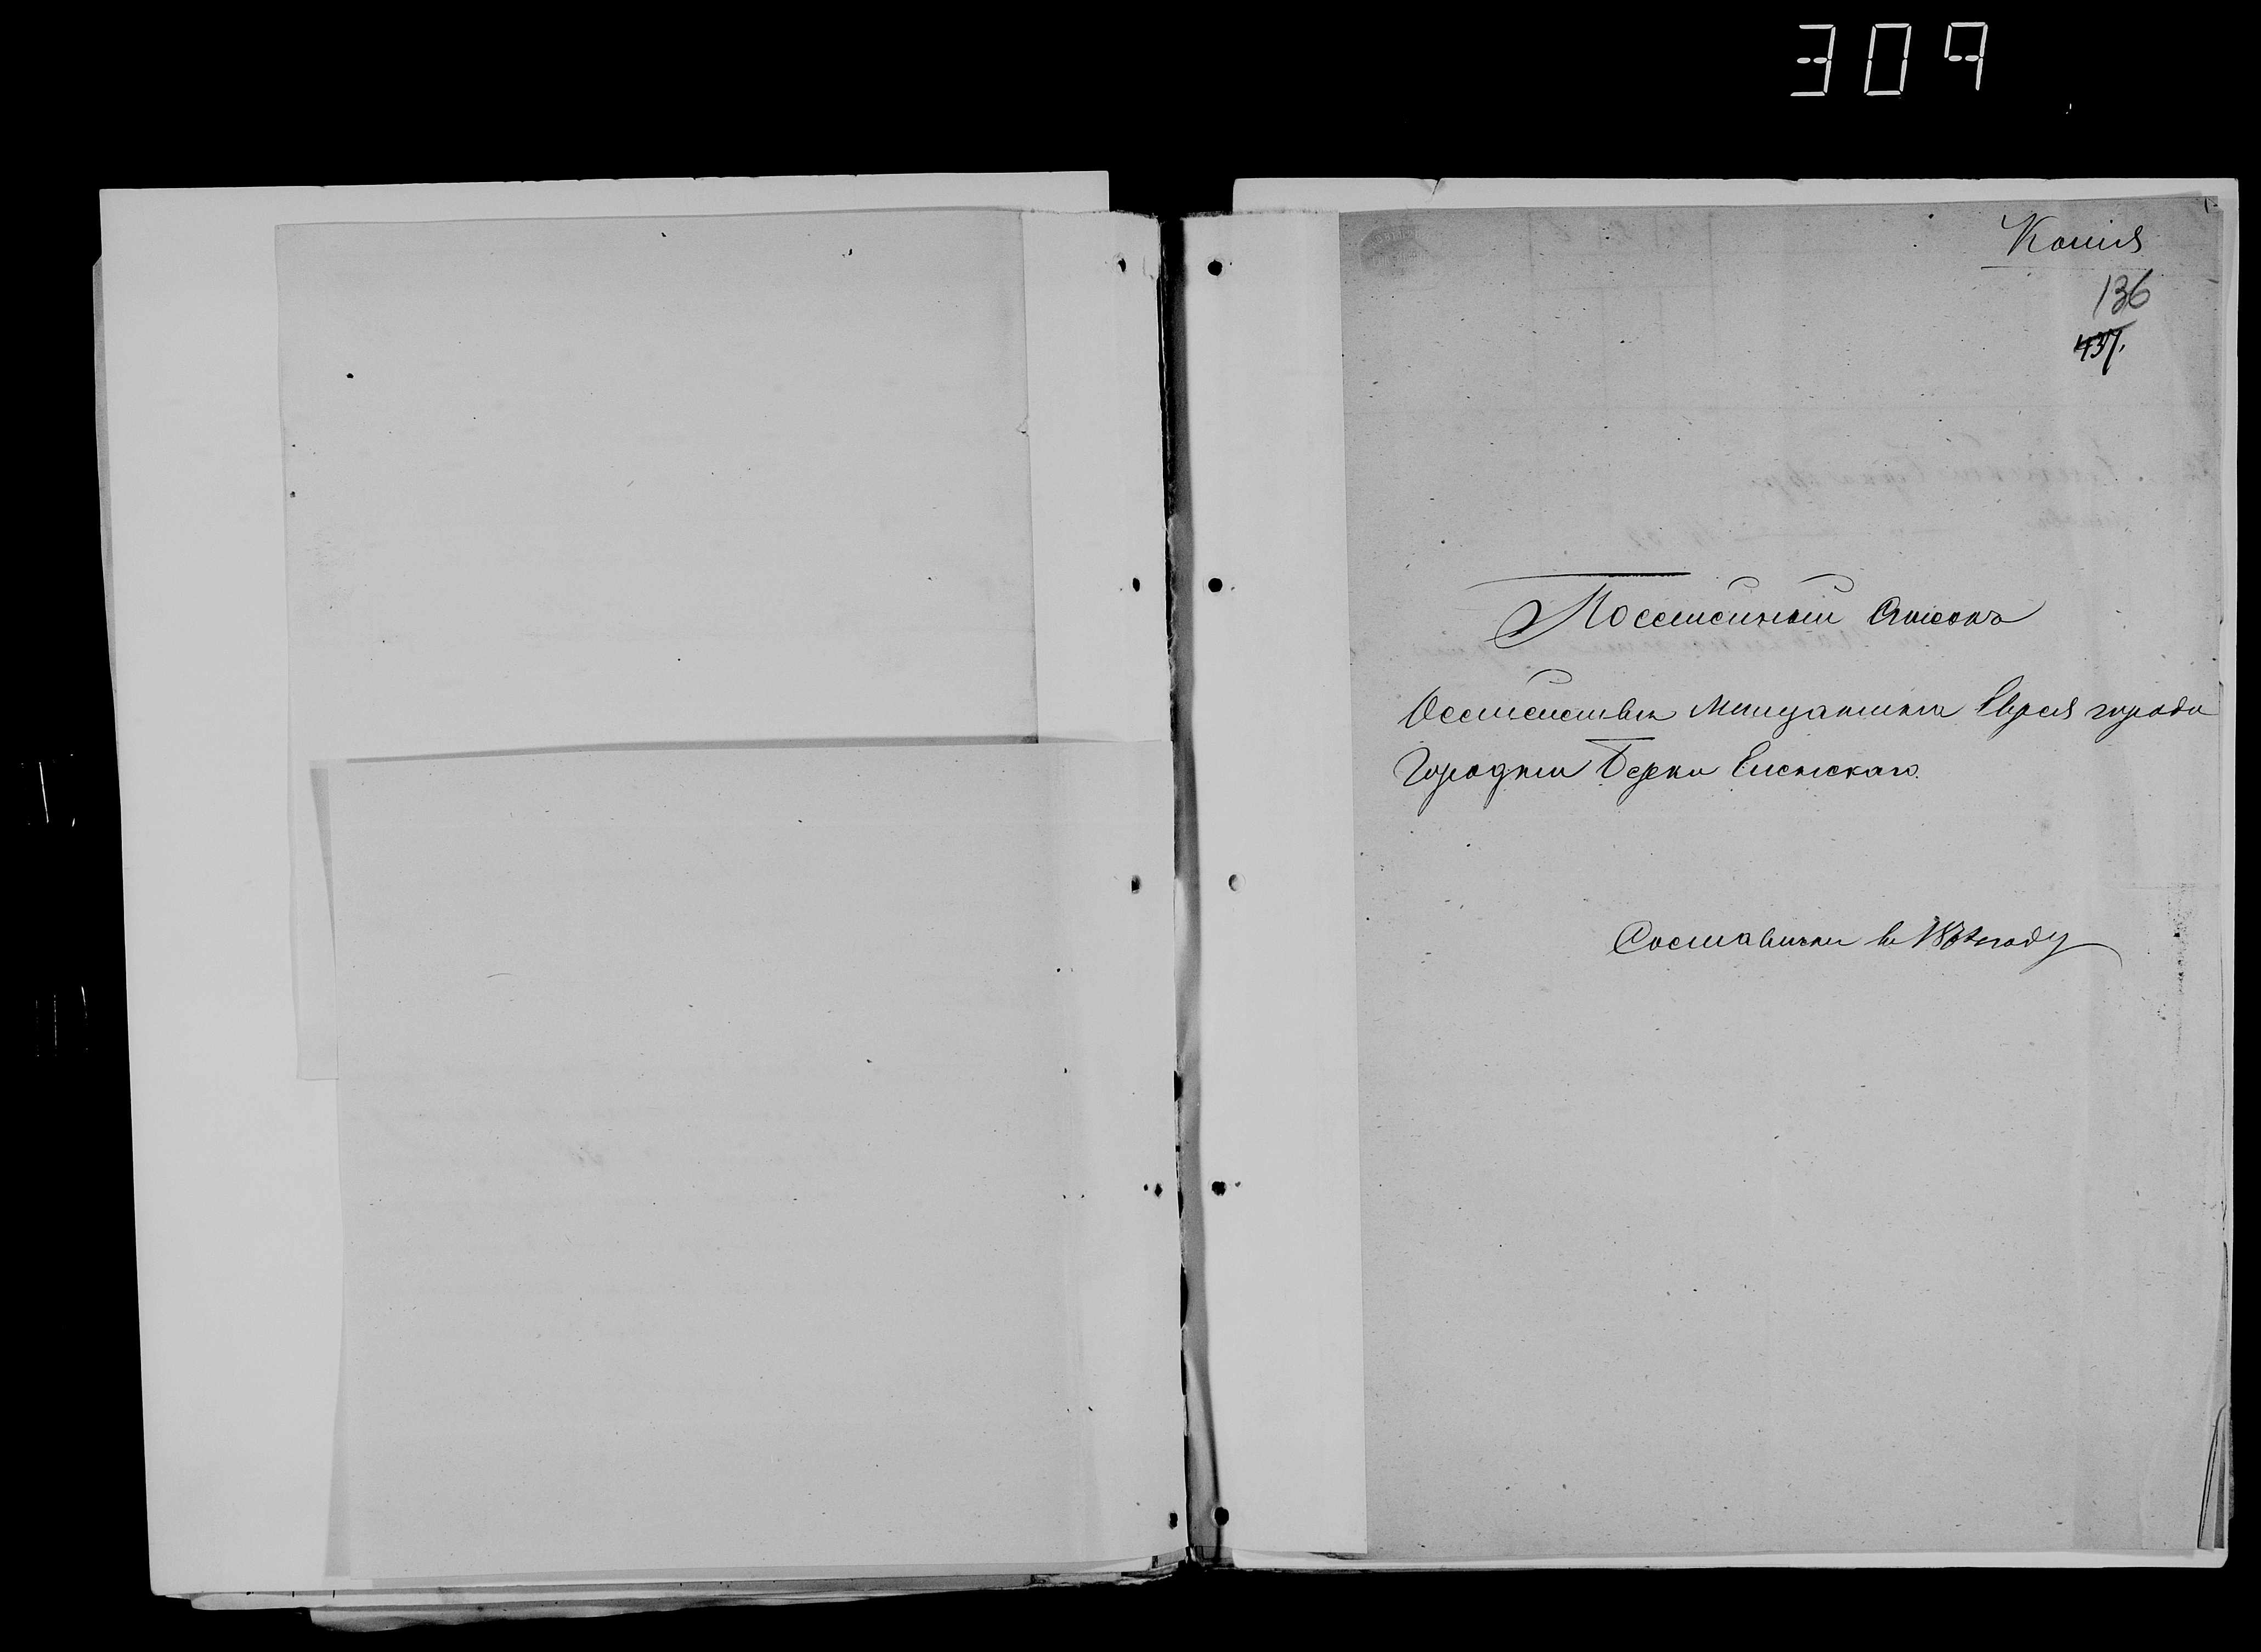 309
Копія
136
437.
Посемейный Списокъ
Семейства Мещанина Еврея города
Городни Берки
Составленъ въ году